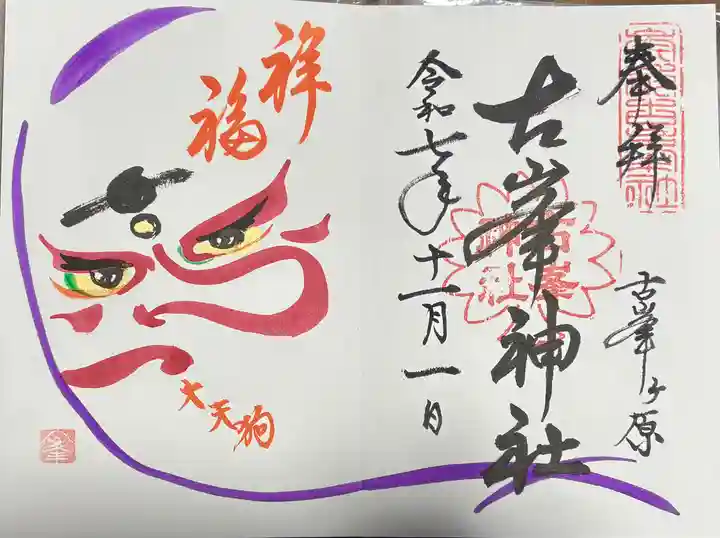 奉拝
古峯ヶ原
古峯神社
古峯神社
令和七年十一月一日
祥福
大天狗
峯